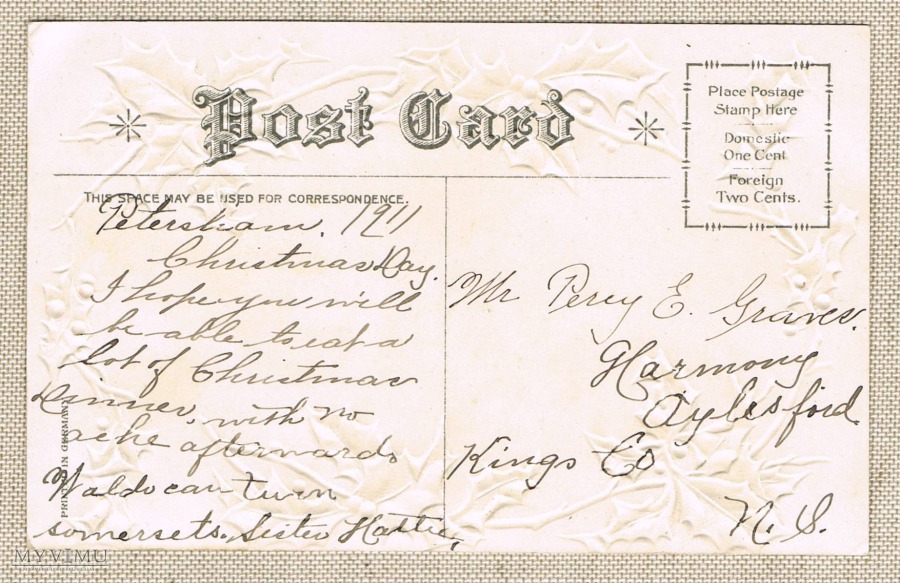 Post Card
Place Postage
Stamp Here
Domestic
One Cent
Foreign
Two Cents.
THIS SPACE MAY BE USED FOR CORRESPONDENCE.
Petersham, 1911
Christmas Day.
I hope you will
be able to eat a
lot of Christmas
dinner, with no
ache afterwards
Waldo can turn
somersets. Sister Hattie,
Mr Percy E. Graves.
Harmony
Aylesford
Kings Co
N. S.
PRINTED IN GERMANY
MYVIMU